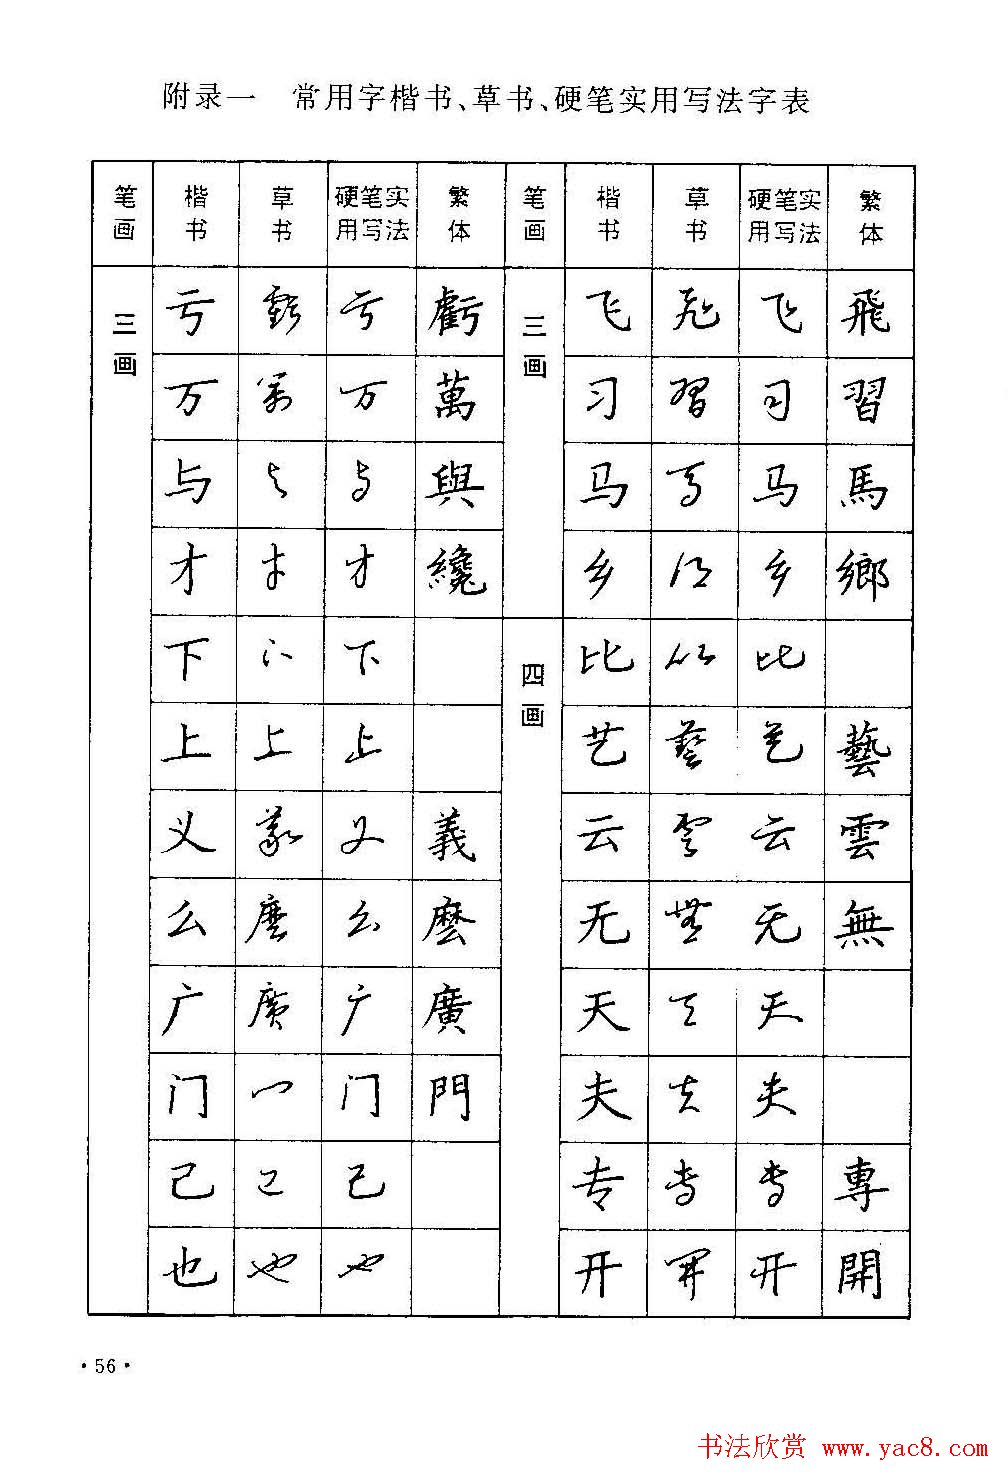 附录一 常用字楷书、草书、硬笔实用写法字表
笔画 楷书 草书 硬笔实用写法 繁体 笔画 楷书 草书 硬笔实用写法 繁体
三画 亏 虧 亏 虧 三画 飞 飛 飞 飛
万 萬 万 萬 习 習 习 習
与 与 与 與 马 马 马 馬
才 才 才 纔 乡 乡 乡 鄉
下 下 下 四画 比 比 比
上 上 上 艺 藝 艺 藝
义 義 义 義 云 雲 云 雲
么 麼 么 麽 无 無 无 無
广 廣 广 廣 天 天 天
门 门 门 門 夫 夫 夫
己 己 己 专 专 专 專
也 也 也 开 開 开 開
·56·
书法欣赏 www.yac8.com